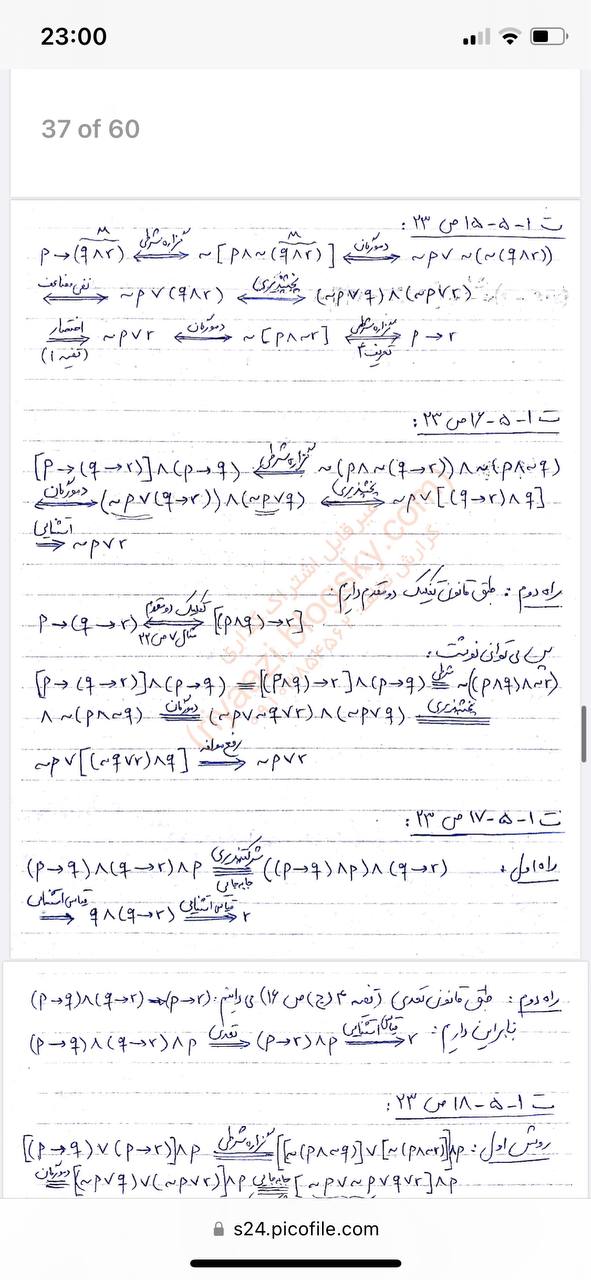 23:00
37 of 60
ت ۱-۵-۱۵ ص ۲۳ :
p→(q∧r) ⟺ گزاره شرطی ~[p∧~(q∧r)] ⟺ دمورگان ~p∨~(~(q∧r))
⟺ نفی مضاعف ~p∨(q∧r) ⟺ پخشپذیری (~p∨q)∧(~p∨r)
⟹ اختصار (قضیه ۱) ~p∨r ⟺ دمورگان ~[p∧~r] ⟺ گزاره شرطی تعریف ۴ p→r
ت ۱-۵-۱۶ ص ۲۳ :
[p→(q→r)]∧(p→q) ⟺ گزاره شرطی ~(p∧~(q→r))∧~(p∧~q)
⟺ دمورگان (~p∨(q→r))∧(~p∨q) ⟺ پخشپذیری ~p∨[(q→r)∧q]
⟹ استثنایی ~p∨r
راه دوم : طبق قانون تفکیک دو مقدم داریم :
p→(q→r) ⟺ تفکیک دو مقدم مثال ۷ ص ۲۲ [(p∧q)→r]
پس می توانی نوشت :
[p→(q→r)]∧(p→q) ≡ [(p∧q)→r]∧(p→q) ≡ شرطی ~((p∧q)∧~r)
∧~(p∧~q) ≡ دمورگان (~p∨~q∨r)∧(~p∨q) ≡ پخشپذیری
~p∨[(~q∨r)∧q] ⟹ رفع مؤلفه ~p∨r
ت ۱-۵-۱۷ ص ۲۳ :
راه اول : (p→q)∧(q→r)∧p ≡ شرکتپذیری جابه جایی ((p→q)∧p)∧(q→r)
⟹ قیاس استثنایی q∧(q→r) ⟹ قیاس استثنایی r
راه دوم : طبق قانون تعدی (قضیه ۴ (ج) ص ۱۶) می دانیم : (p→q)∧(q→r)⇒(p→r)
بنابراین داریم : (p→q)∧(q→r)∧p ⟹ تعدی (p→r)∧p ⟹ قیاس استثنایی r
ت ۱-۵-۱۸ ص ۲۳ :
روش اول : [(p→q)∨(p→r)]∧p ≡ گزاره شرطی [[~(p∧~q)]∨[~(p∧~r)]]∧p
≡ دمورگان [(~p∨q)∨(~p∨r)]∧p ≡ جابه جایی [~p∨~p∨q∨r]∧p
(riyaazi.blogsky.com)
s24.picofile.com